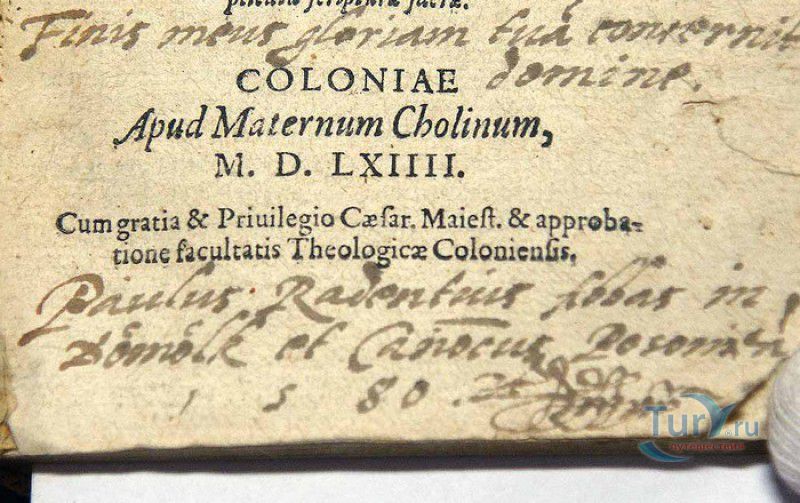 scripturæ sacræ.
Finis meus gloriam tua concernit
COLONIAE domine.
Apud Maternum Cholinum,
M. D. LXIIII.
Cum gratia & Priuilegio Cæsar. Maiest. & approba-
tione facultatis Theologicæ Coloniensis.
Paulus Radentius Abbas in
Dömölk et Canōcus Posonien
1580.
Tury.ru
путешествия